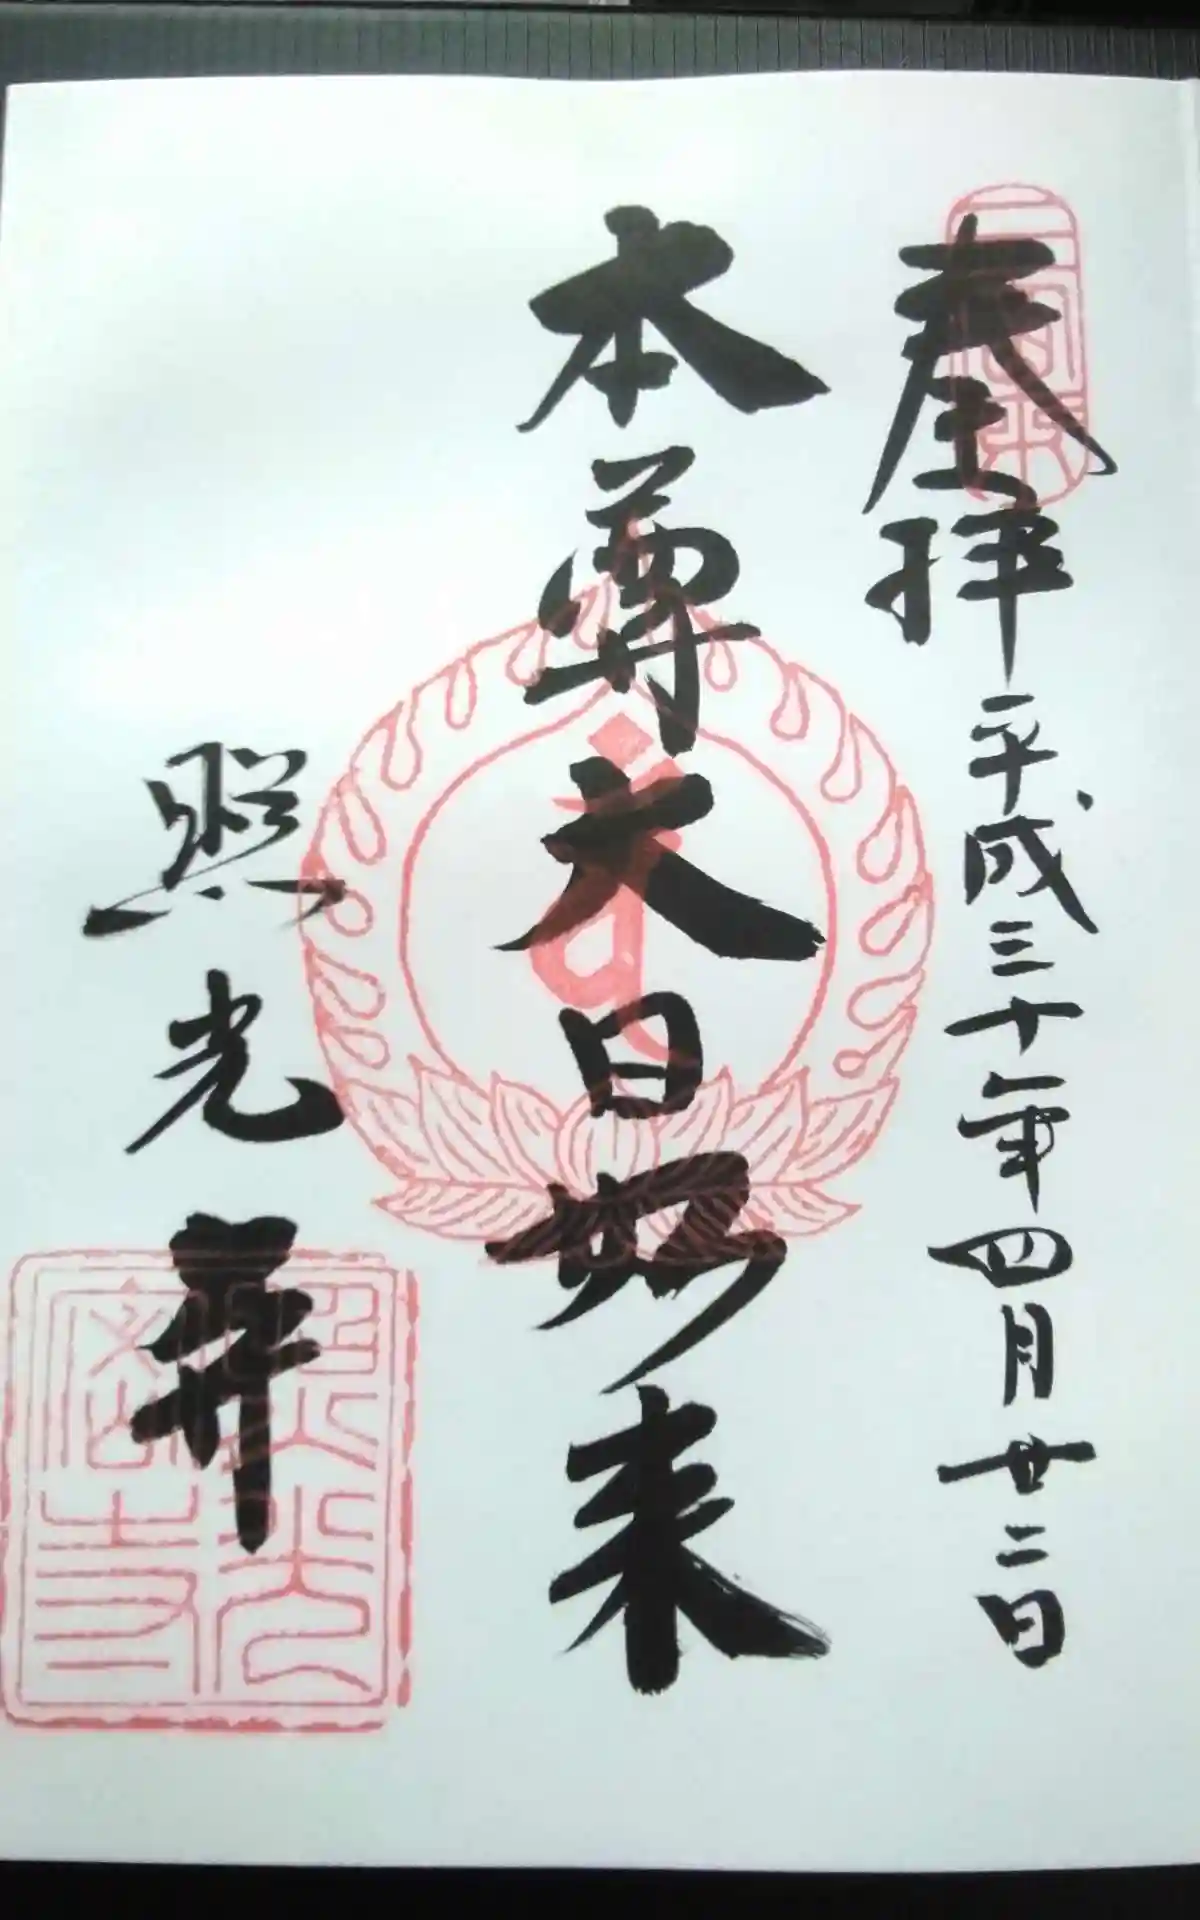 奉拝 平成三十年四月廿二日
本尊大日如来
照光寺